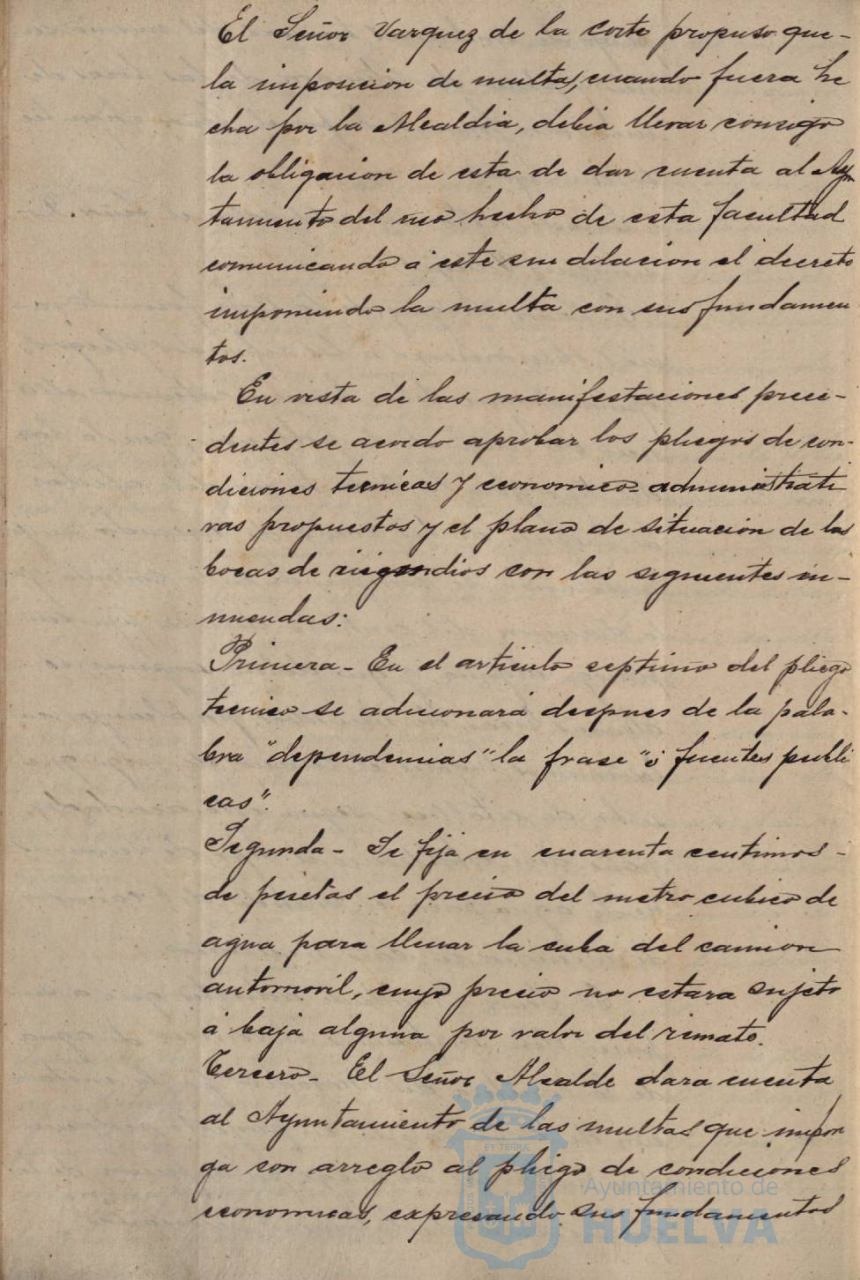 El Señor Vazquez de la corte propuso que-
la imposicion de multas, cuando fuera he
cha por la Alcaldia, debia llevar consigo
la obligacion de esta de dar cuenta al Ayun
tamiento del uso hecho de esta facultad
comunicando á este sin dilacion el decreto
imponiendo la multa con sus fundamen
tos.
En vista de las manifestaciones prece-
dentes se acordo aprobar los pliegos de con-
diciones tecnicas y economico-administrati
vas propuestos y el plano de situacion de las
bocas de incendios con las siguientes en-
miendas:
Primera- En el articulo septimo del pliego
tecnico se adicionará despues de la pala-
bra "dependencias" la frase "ó fuentes publi
cas".
Segunda- Se fija en cuarenta centimos-
de pesetas el precio del metro cubico de
agua para llenar la cuba del camion
automovil, cuyo precio no estara sujeto
á baja alguna por valor del remate.
Tercero- El Señor Alcalde dara cuenta
al Ayuntamiento de las multas que impon
ga con arreglo al pliego de condiciones
economicas, expresando sus fundamentos
Ayuntamiento de
HUELVA